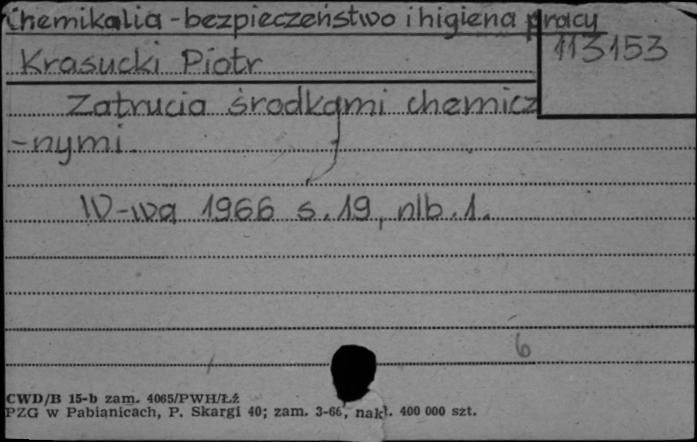 Chemikalia - bezpieczeństwo i higiena pracy
113153
Krasucki Piotr
Zatrucia środkami chemicz
-nymi.
W-wa 1966 s. 19, nlb. 1.
6
CWD/B 15-b zam. 4065/PWH/Łź
PZG w Pabianicach, P. Skargi 40; zam. 3-66, nakł. 400 000 szt.